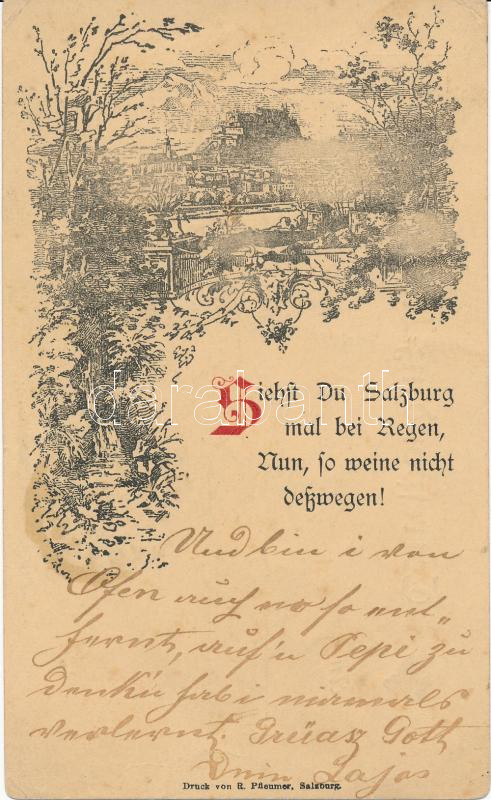 Siehst Du Salzburg
mal bei Regen,
Nun, so weine nicht
deßwegen!
darabanth
Und bin i von
Ofen auch no so ent„
fernt, auf'n Pepi zu
denk'n hab i niamals
verlernt. Grüasz Gott
Dein Lajos
Druck von R. Pfleumer, Salzburg.